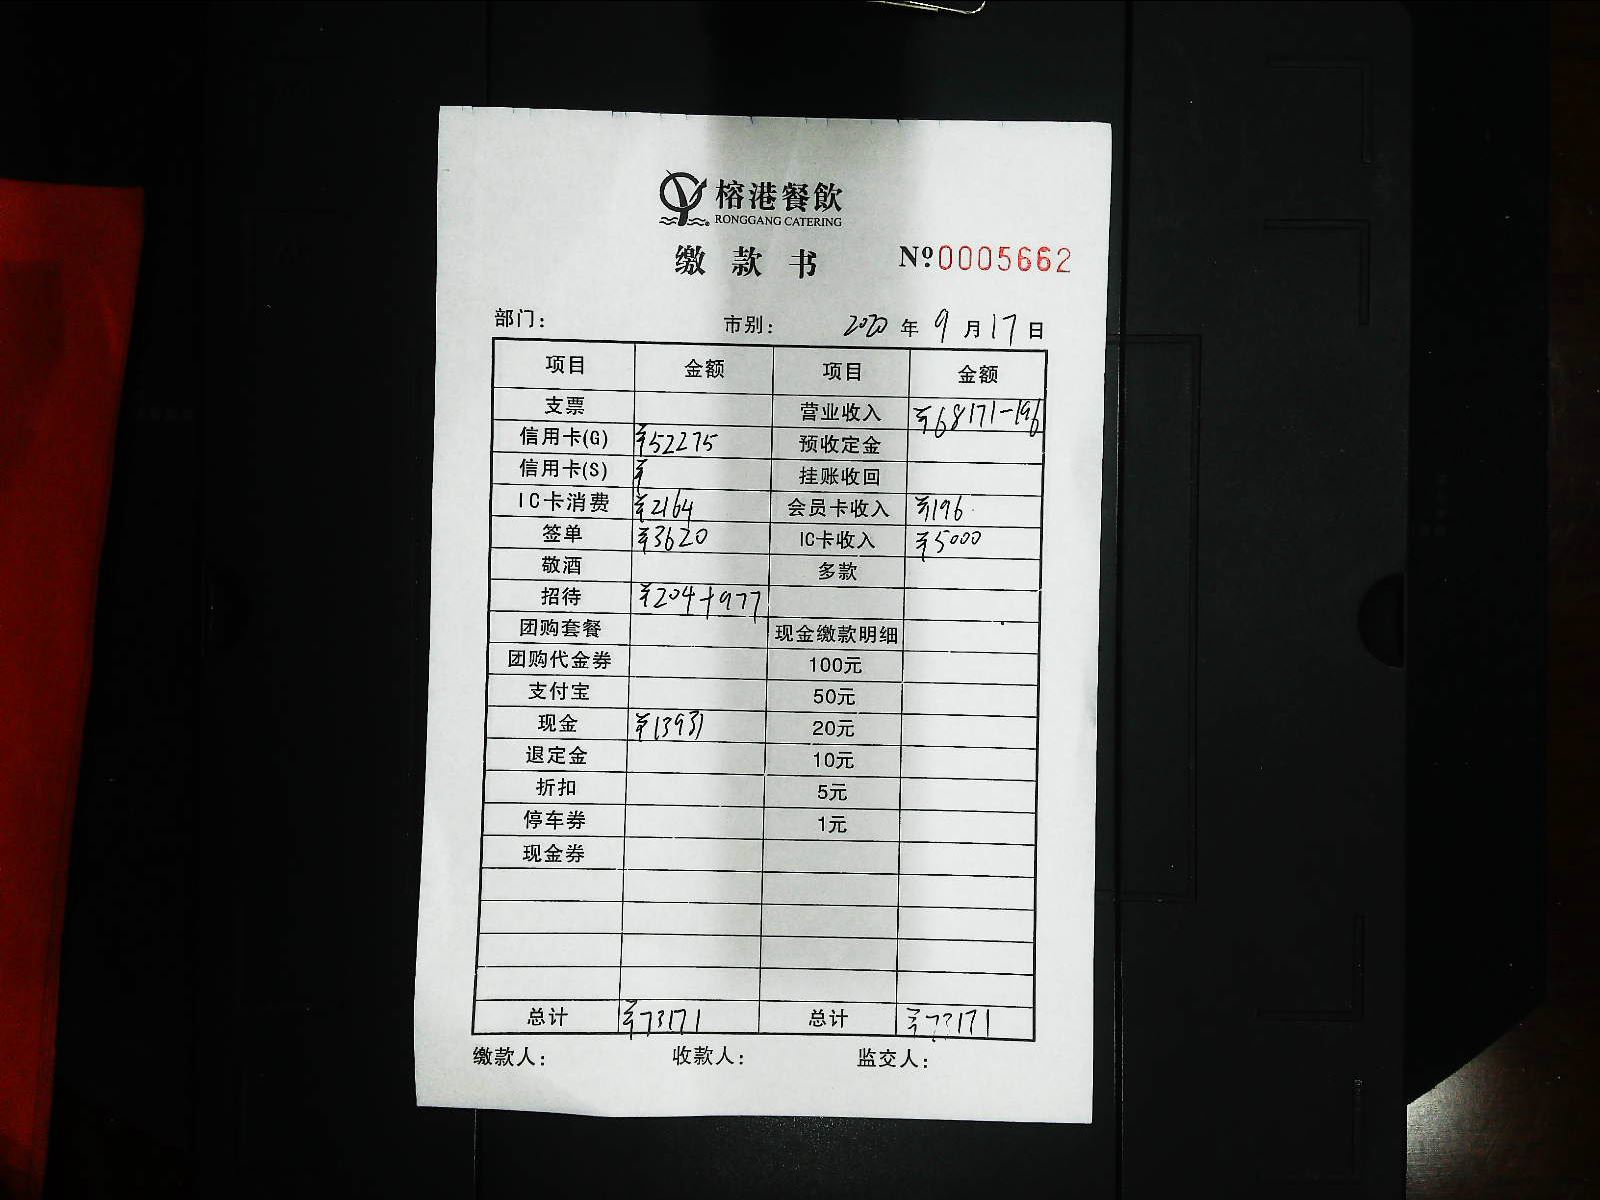 榕港餐飲
RONGGANG CATERING
缴款书 №0005662
部门： 市别： 2020年9月17日
项目 金额 项目 金额
支票 营业收入 ¥68171-196
信用卡(G) ¥52275 预收定金
信用卡(S) ¥ 挂账收回
IC卡消费 ¥2164 会员卡收入 ¥196
签单 ¥3620 IC卡收入 ¥5000
敬酒 多款
招待 ¥204+977
团购套餐 现金缴款明细
团购代金券 100元
支付宝 50元
现金 ¥13931 20元
退定金 10元
折扣 5元
停车券 1元
现金券
总计 ¥73171 总计 ¥73171
缴款人： 收款人： 监交人：